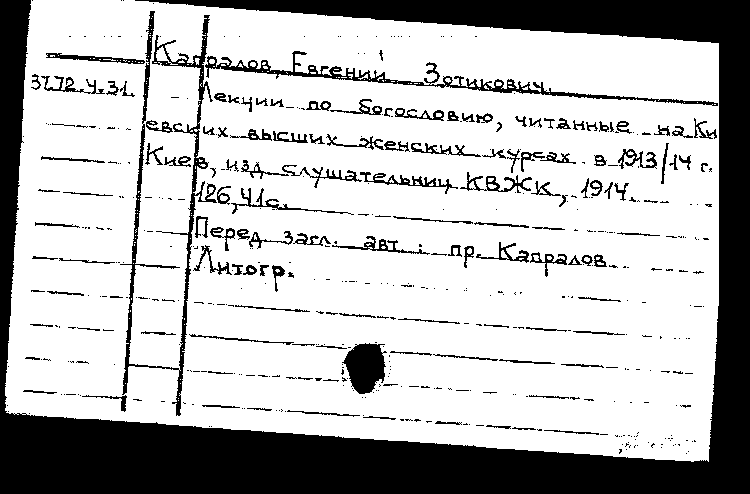 Капралов, Евгений Зотикович.
37.72.4.31.
Лекции по богословию, читанные на Ки
евских высших женских курсах в 1913/14 г.
Киев, изд. слушательниц КВЖК, 1914.
126, 41 с.
Перед загл. авт.: пр. Капралов
Литогр.